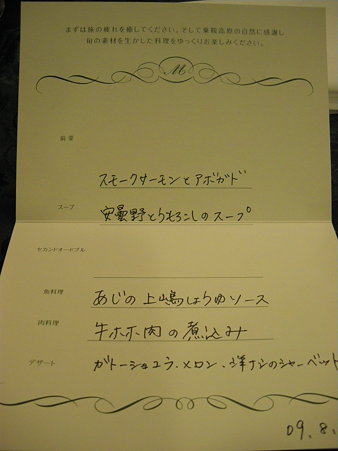 まずは旅の疲れを癒してください。そして乗鞍高原の自然に感謝し
旬の素材を生かした料理をゆっくりお楽しみください。
M
前菜
スモークサーモンとアボガド
スープ
安曇野とうもろこしのスープ
セカンドオードブル
魚料理
あじの上嶋しょうゆソース
肉料理
牛ホホ肉の煮込み
デザート
ガトーショコラ・メロン・洋ナシのシャーベット
09.8.